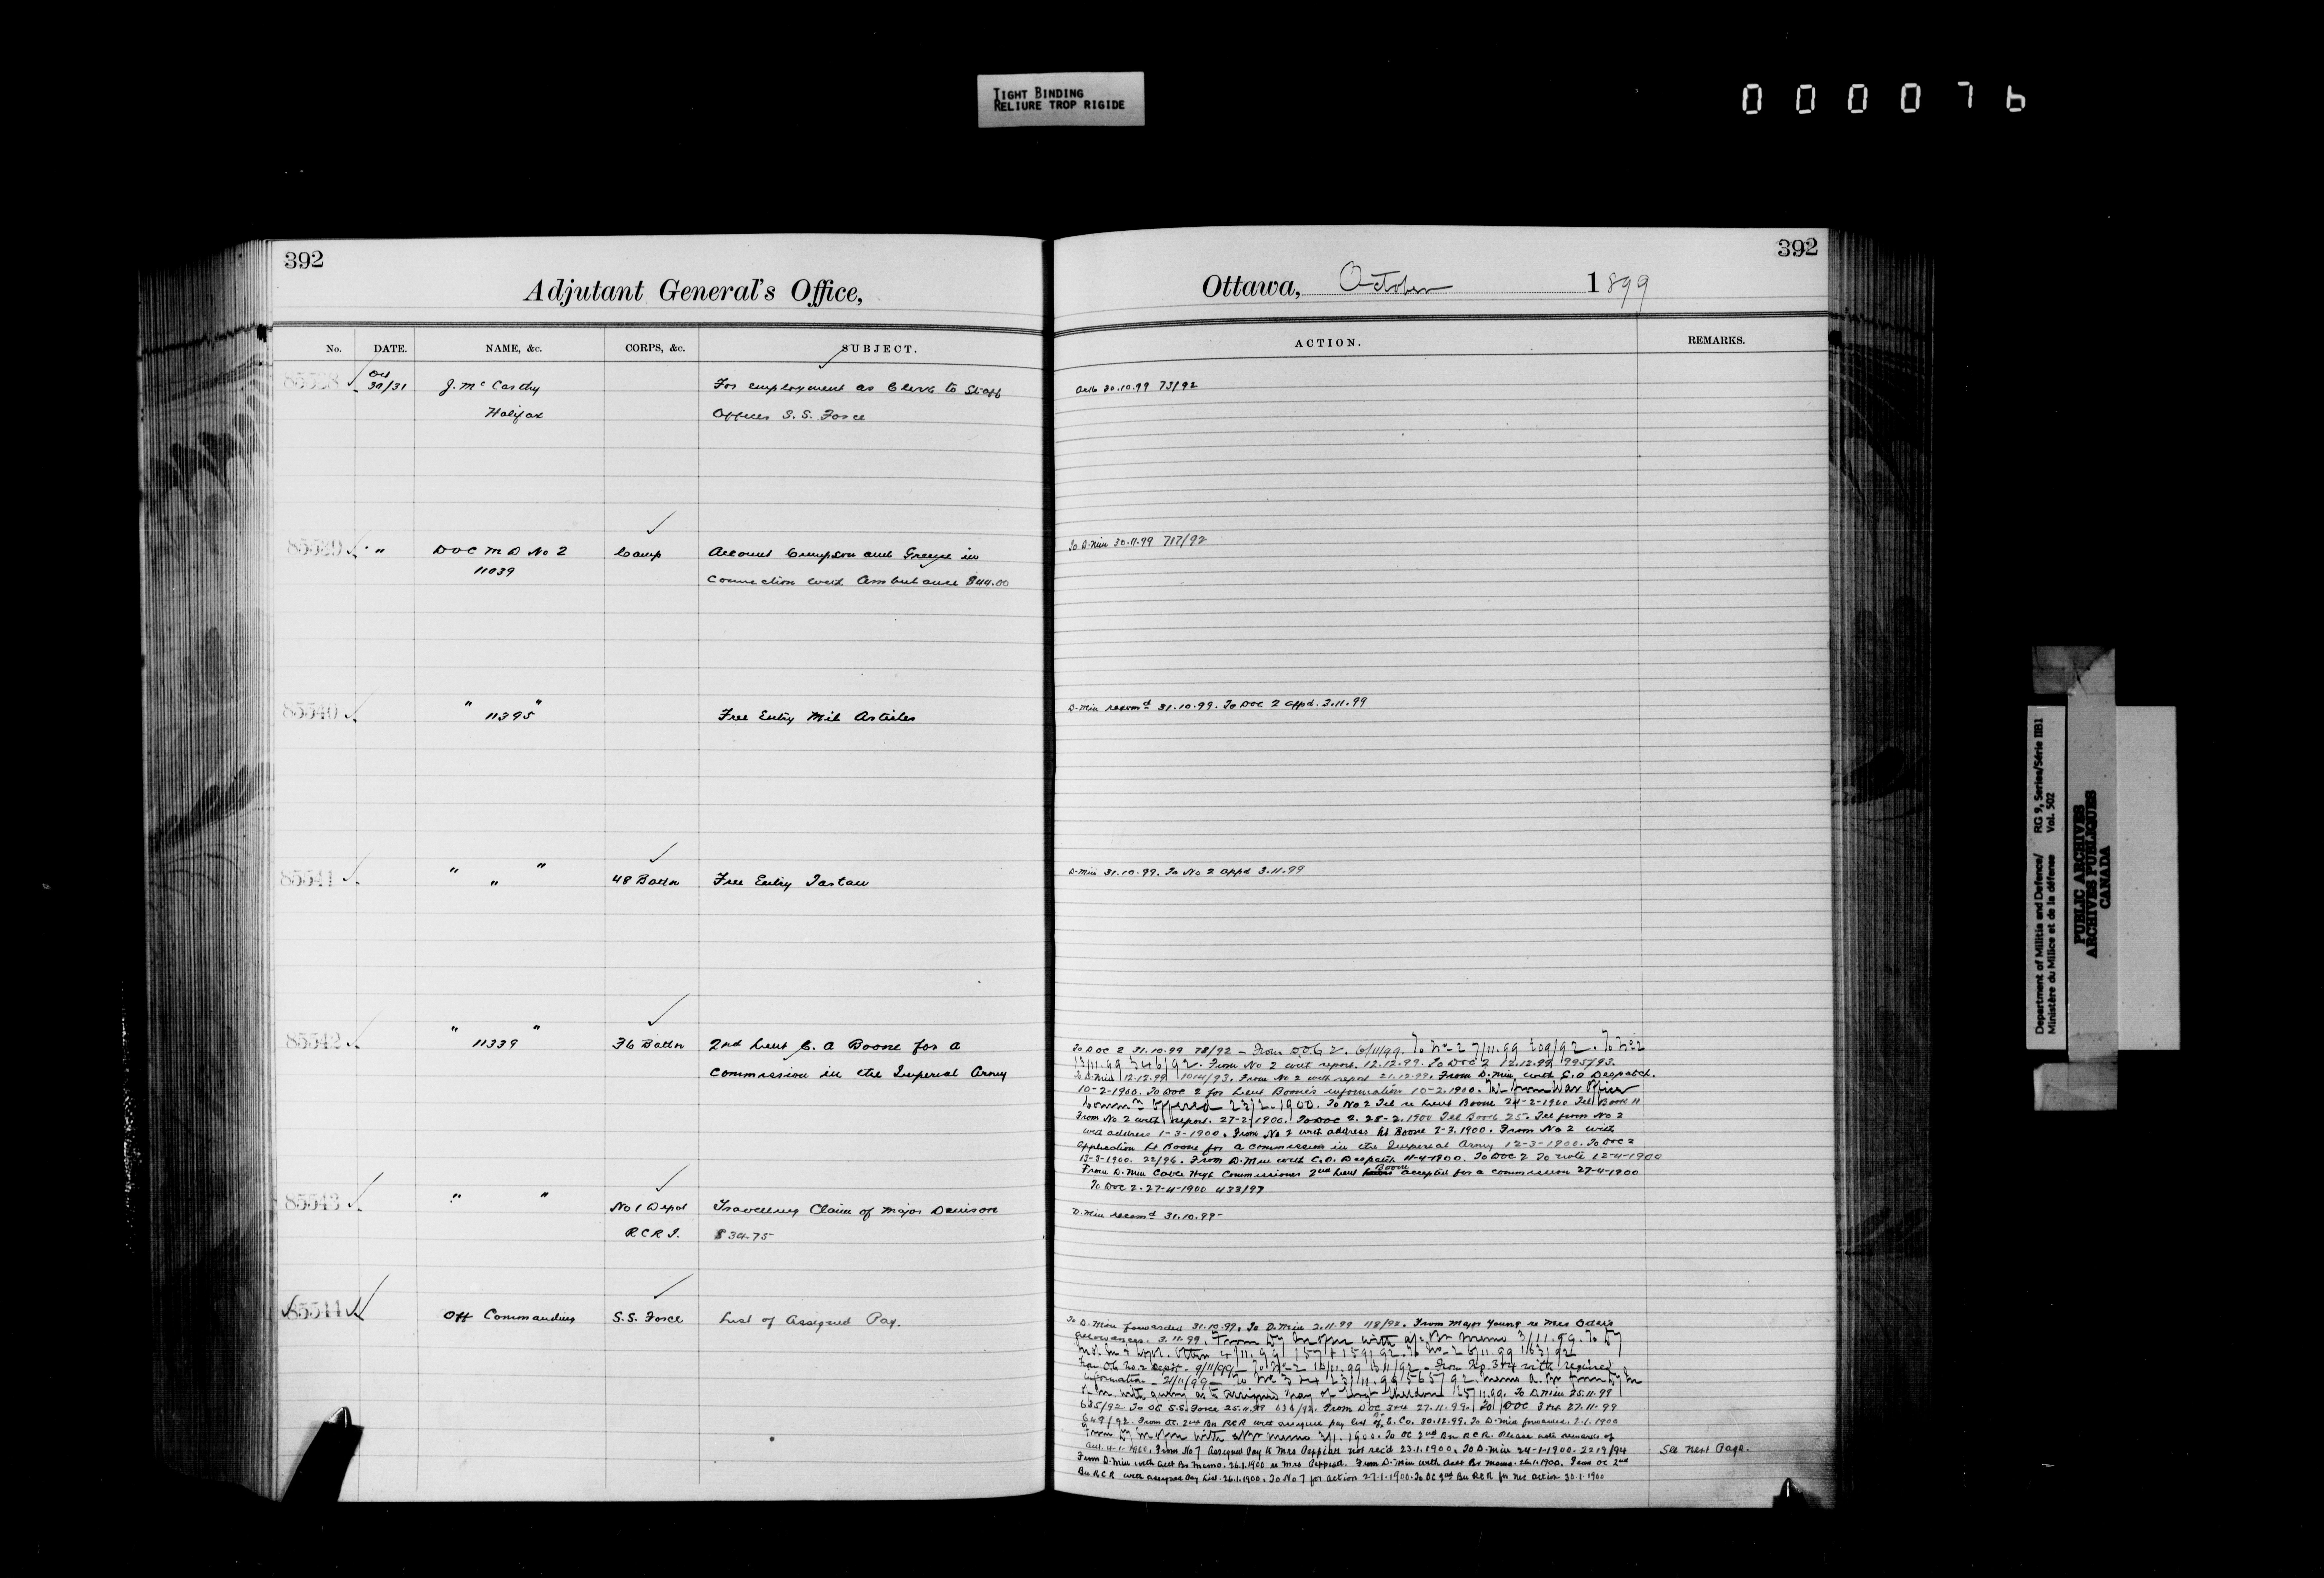 TIGHT BINDING
RELIURE TROP RIGIDE
000076
392
Adjutant General's Office,
No. DATE. NAME, &c. CORPS, &c. SUBJECT.
85538 Oct 30/31 J. McCarthy For employment as Clerk to Staff
Halifax Officer S.S. Force
85539 " DOC M D No 2 Camp Account Crumpson and Greys in
11039 Connection with Ambulance $44.00
85540 " "
11395 Free Entry Mil Articles
85541 " "
" 48 Battn Free Entry Tartan
85542 " "
11339 36 Battn 2nd Lieut C. A Boone for a
Commission in the Imperial Army
85543 " " No 1 Depot Travelling Claim of Major Denison
R C R I. $34.75
85544 Off Commanding S.S. Force List of Assigned Pay.
392
Ottawa, October 1899
ACTION. REMARKS.
Ack 30.10.99 73/92
To D. Min 30.11.99 717/92
D. Min recomd 31.10.99. To DOC 2 appd. 3.11.99
D. Min 31.10.99. To No 2 appd 3.11.99
To DOC 2 31.10.99 78/92 - From D.O.C 2. 6/11/99. To No 2 7/11.99 209/92. To No 2
13/11.99 346/92. From No 2 with report. 12.12.99. To DOC 2 12.12.99 995/93.
To D. Min 12.12.99 1014/93. From No 2 with report 21.12.99. From D. Min with C.O Despatch.
10-2-1900. To DOC 2 for Lieut Boone's information 10-2-1900. Tel from War Office
Commn offered 23/2.1900. To No 2 Tel re Lieut Boone 24-2-1900 Tel Book 11
From No 2 with report. 27-2-1900. To DOC 2. 28-2.1900 Tel Book 25. Tel from No 2
with address 1-3-1900. From No 2 with address Lt Boone 2-3.1900. From No 2 with
application Lt Boone for a commission in the Imperial Army 12-3-1900. To DOC 2
13-3-1900. 22/96. From D. Min with C.O. Despatch 11-4-1900. To DOC 2 To note 12-4-1900
From D. Min Cable High Commissioner 2nd Lieut Boone accepted for a commission 27-4-1900
To DOC 2-27-4-1900 433/97
D. Min recomd 31.10.99-
To D. Min forwarded 31.10.99. To D. Min 2.11.99 118/92. From Major Young re Mrs
allowances. 3.11.99. From Dy Min with a/c Br memo 3/11.99. To Dy
4/11.99 157 + 159/92. To No 2 6/11.99 163/92
From O.C. No. 2 Depot - 9/11/99 - To No 2 10/11.99 311/92 - From No. 3+4 with required
information - 21/11/99 - To No 3 + 4 23/11.99 565/92. Memo
with query as to assigned pay of Sheldon 25/11.99. To D Min 25.11.99
635/92 To OC S.S. Force 25.11.99 636/92. From DOC 3+4 27.11.99. To DOC 3+4. 27.11.99
649/92. From OC. 2nd Bn RCR with assigned pay list of E. Co. 30.12.99. To D. Min forwarded. 2.1.1900
From Dy Min with memo 3/1.1900. To OC 2nd Bn R.C.R. Please note remarks of
Act. 4-1-1900. From No 7 Assigned Pay to Mrs Peppiatt not rec'd 23.1.1900. To D. Min 24-1-1900. 2219/94
From D. Min with Acct Br Memo. 26.1.1900 re Mrs Peppiatt. From D. Min with Acct Br Memo. 26.1.1900. From OC 2nd
Bn R.C.R with assigned Pay List 26.1.1900. To No 7 for action 27.1.1900. To OC 2nd Bn R.C.R for nec action 30.1.1900
See next Page.
Department of Militia and Defence/ RG 9, Series/Série IIB1
Ministère du Milice et de la défense Vol. 502
PUBLIC ARCHIVES
ARCHIVES PUBLIQUES
CANADA